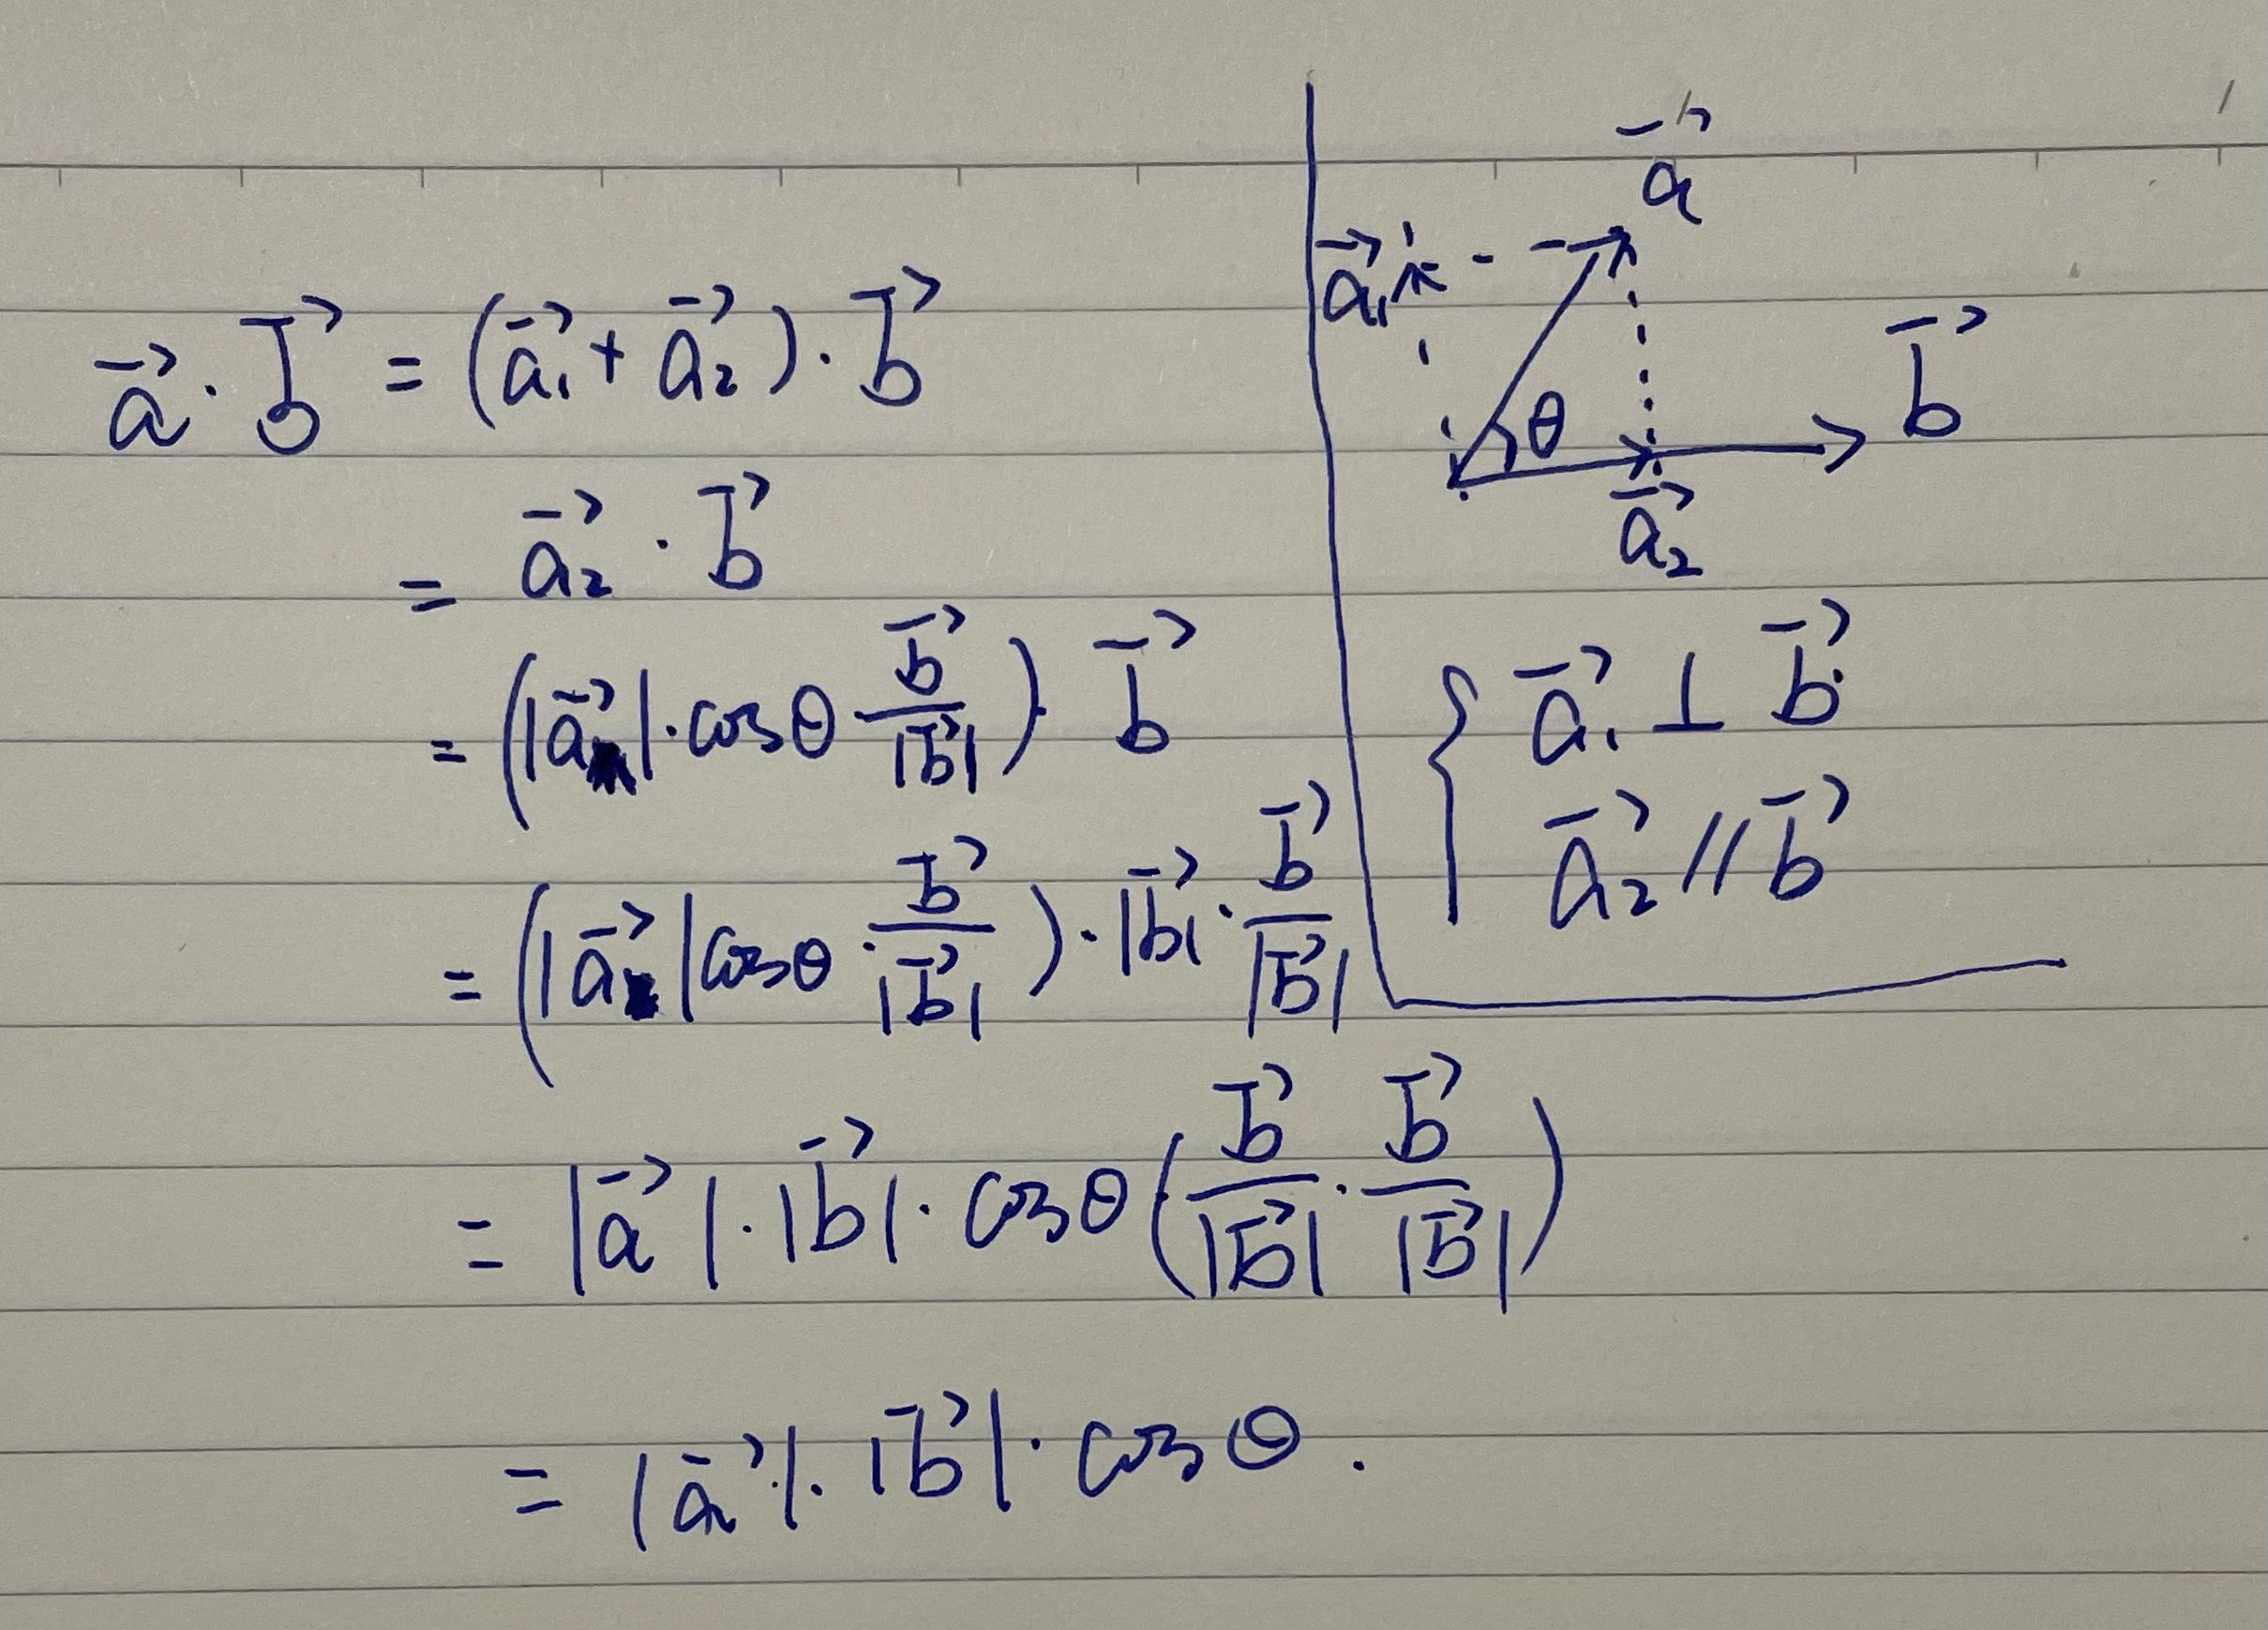 $\vec{a} \cdot \vec{b} = (\vec{a}_1 + \vec{a}_2) \cdot \vec{b}$
$= \vec{a}_2 \cdot \vec{b}$
$= \left(|\vec{a}| \cdot \cos\theta \cdot \frac{\vec{b}}{|\vec{b}|}\right) \cdot \vec{b}$
$= \left(|\vec{a}| \cos\theta \cdot \frac{\vec{b}}{|\vec{b}|}\right) \cdot |\vec{b}| \cdot \frac{\vec{b}}{|\vec{b}|}$
$= |\vec{a}| \cdot |\vec{b}| \cdot \cos\theta \left(\frac{\vec{b}}{|\vec{b}|} \cdot \frac{\vec{b}}{|\vec{b}|}\right)$
$= |\vec{a}| \cdot |\vec{b}| \cdot \cos\theta.$
$\vec{a}$
$\vec{a}_1$
$\vec{b}$
$\theta$
$\vec{a}_2$
$\vec{a}_1 \perp \vec{b}$
$\vec{a}_2 // \vec{b}$